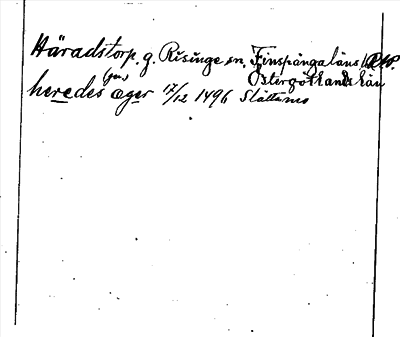 Häradstorp. g. Risinge sn. Finspångaläns
Östergötlands län
(gen)
heredes æger 17/12 1496 Slättanes